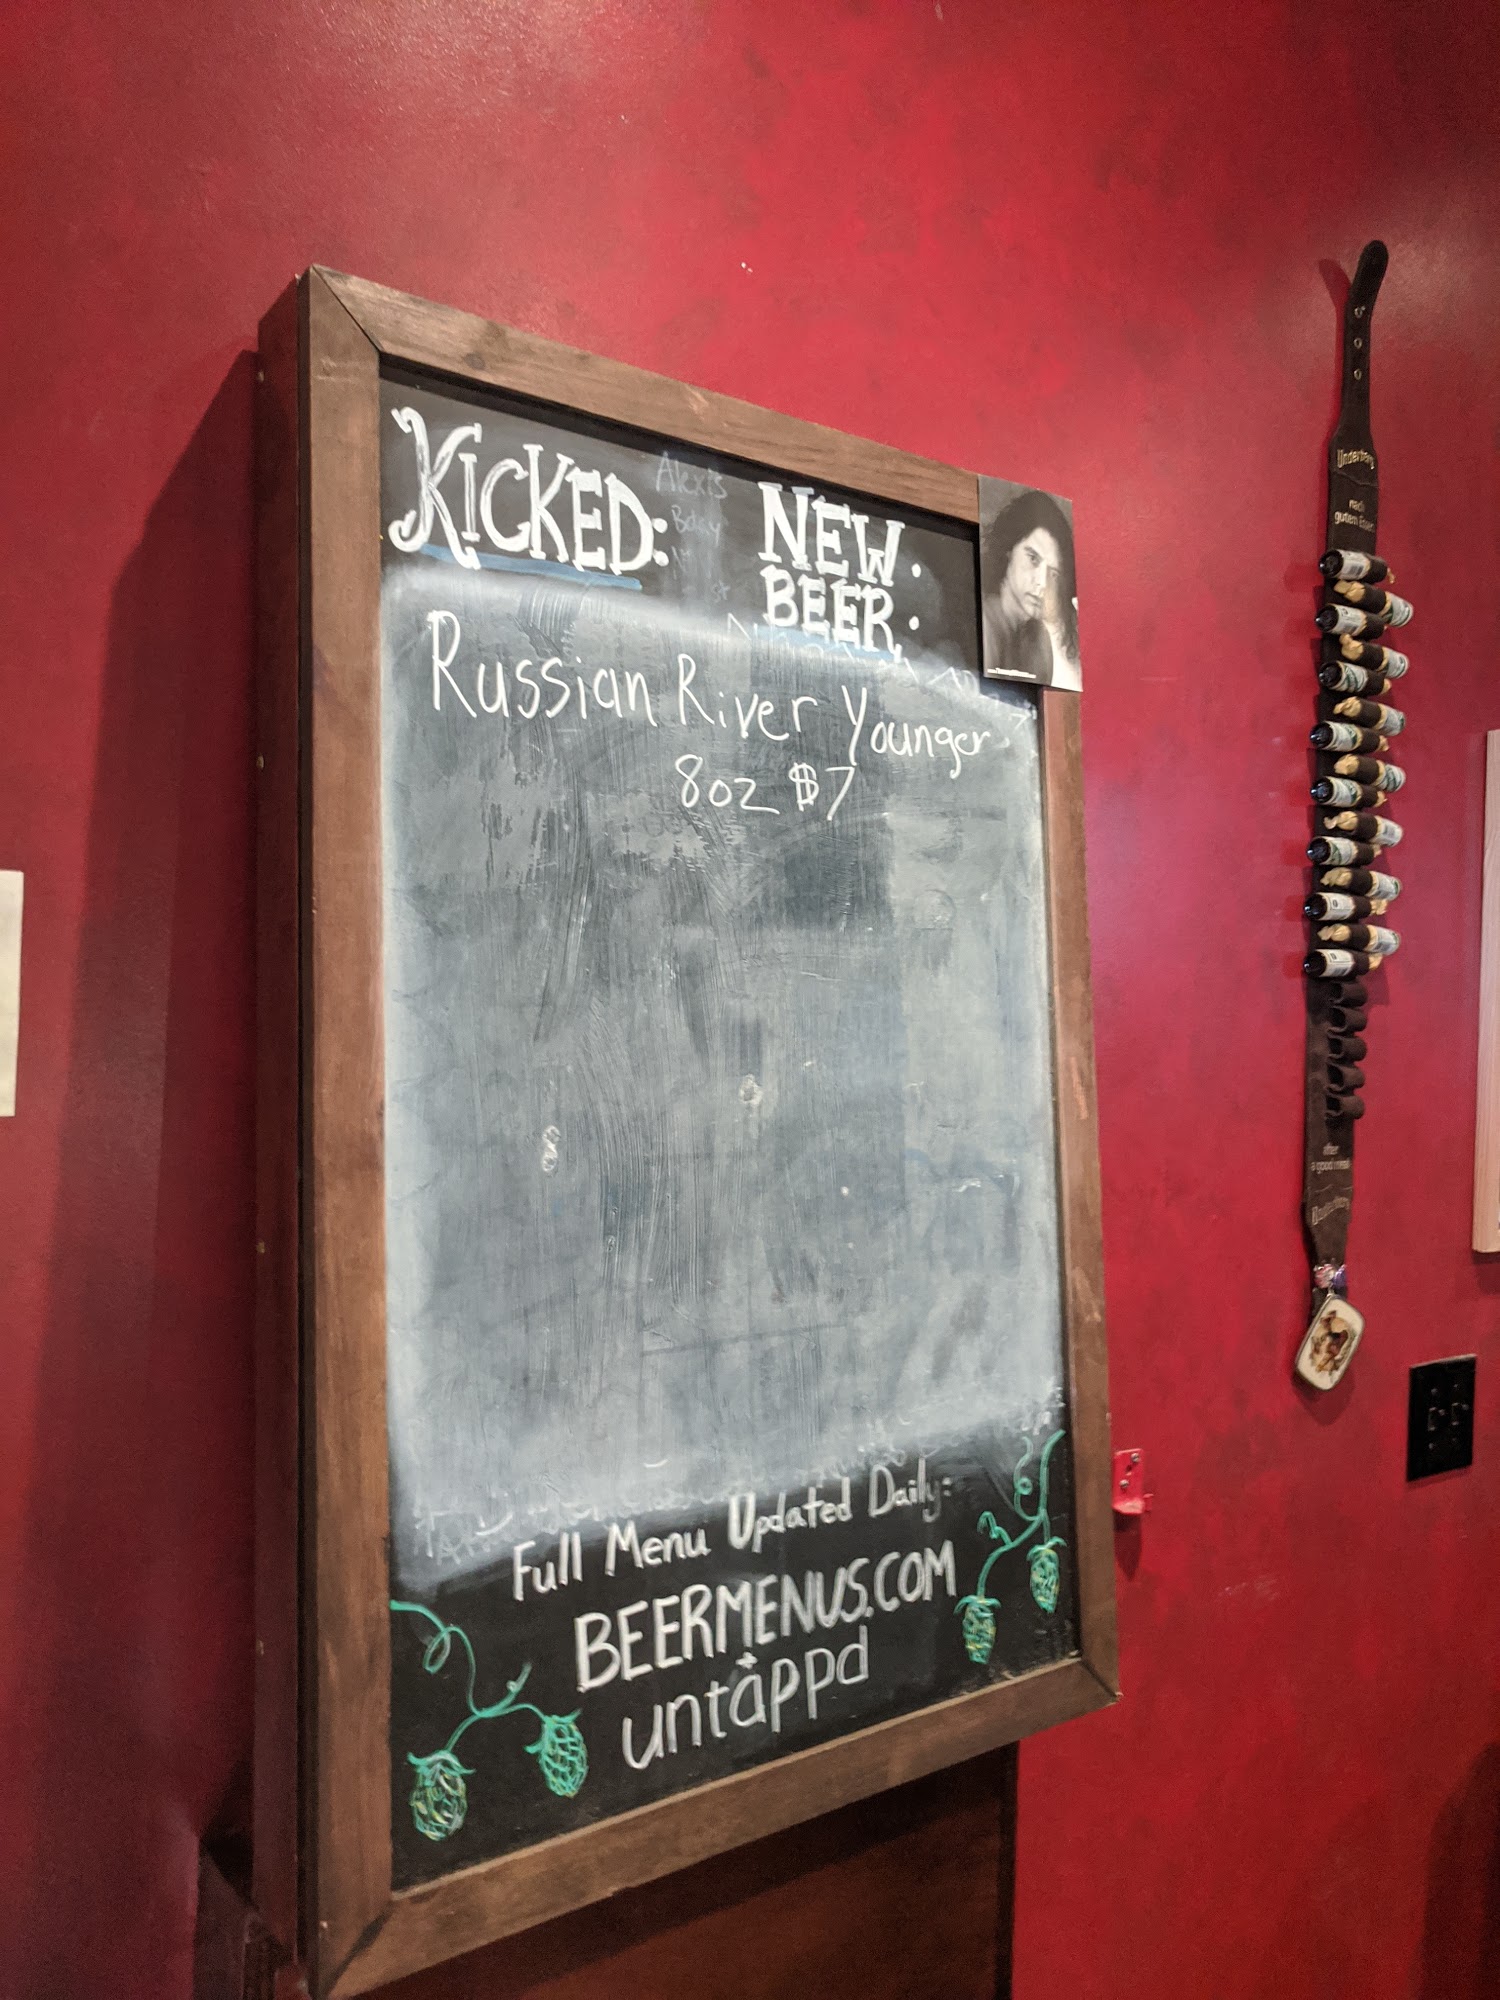 KICKED:
Alexis
Bday
NEW
BEER:
Russian River Younger
8oz $7
Full Menu Updated Daily:
BEERMENUS.COM
+
untappd
Underberg
nach
gutem Essen
after
a good meal
Underberg